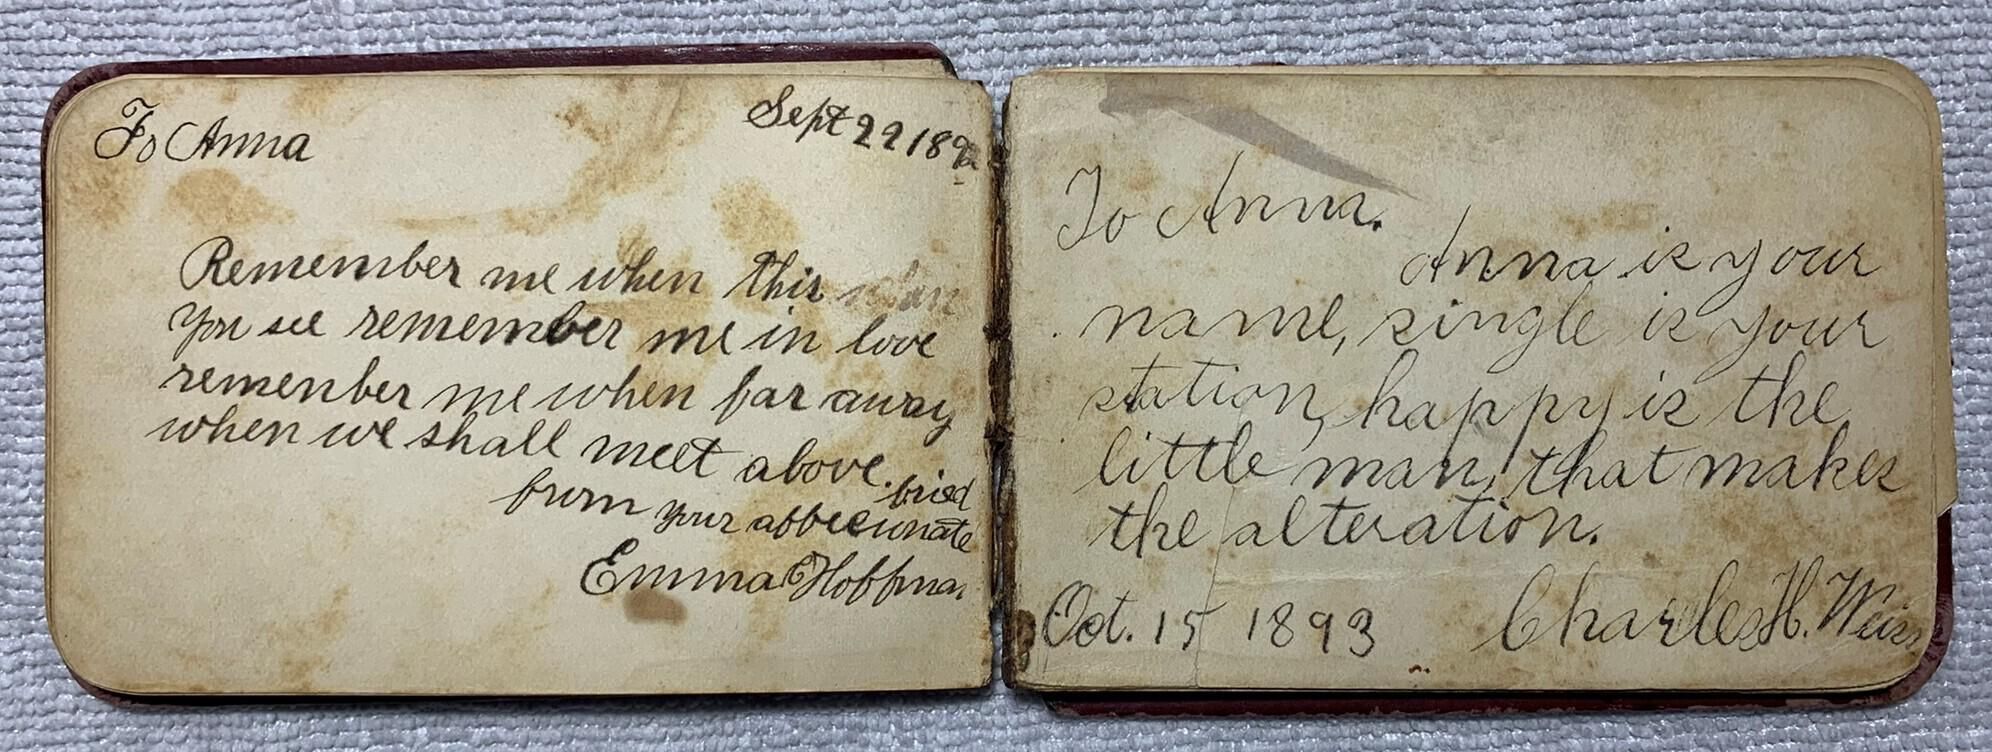 To Anna
Sept 22 189
Remember me when this
you see remember me in love
remenber me when far away
when we shall meet above.
from your affecunate fried
Emma Hoffman
To Anna.
Anna is your
name, single is your
station, happy is the
little man, that makes
the alteration.
Oct. 15 1893
Charles H. Weiss